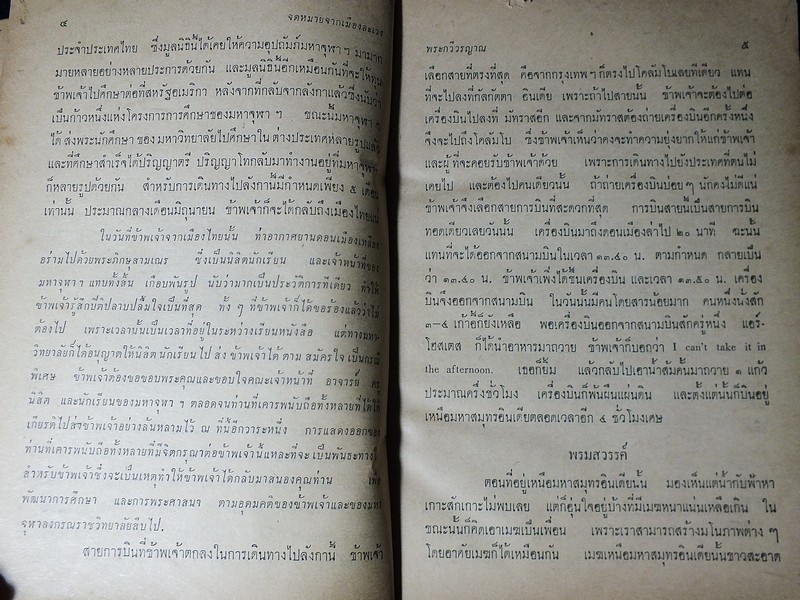 ๔
จดหมายจากเมืองละเวง
ประจำประเทศไทย ซึ่งมูลนิธินี้ได้เคยให้ความอุปถัมภ์มหาจุฬาฯ มามาก
มายหลายอย่างหลายประการด้วยกัน และมูลนิธินี้อีกเหมือนกันที่จะให้ทุน
ข้าพเจ้าไปศึกษาต่อที่สหรัฐอเมริกา หลังจากที่กลับจากลังกาแล้วซึ่งนับว่า
เป็นก้าวหนึ่งแห่งโครงการการศึกษาของมหาจุฬาฯ ขณะนี้มหาจุฬาฯ
ได้ส่งพระนักศึกษาของมหาวิทยาลัยไปศึกษาในต่างประเทศหลายรูปแล้ว
และที่ศึกษาสำเร็จได้ปริญญาตรี ปริญญาโทกลับมาทำงานอยู่ที่มหาจุฬาฯ
ก็หลายรูปด้วยกัน สำหรับการเดินทางไปลังกานี้มีกำหนดเพียง ๕ เดือน
เท่านั้น ประมาณกลางเดือนมิถุนายน ข้าพเจ้าก็จะได้กลับถึงเมืองไทย
ในวันที่ข้าพเจ้าจากเมืองไทยนั้น ท่าอากาศยานดอนเมืองเหลือง
อร่ามไปด้วยพระภิกษุสามเณร ซึ่งเป็นนิสิตนักเรียน และเจ้าหน้าที่ของ
มหาจุฬาฯ แทบทั้งสิ้น เกือบพันรูป นับว่ามากเป็นประวัติการทีเดียว ทำให้
ข้าพเจ้ารู้สึกปีติปลาบปลื้มใจเป็นที่สุด ทั้ง ๆ ที่ข้าพเจ้าก็ได้ขอร้องแล้วว่าไม่
ต้องไป เพราะเวลานั้นเป็นเวลาที่อยู่ในระหว่างเรียนหนังสือ แต่ทางมหา
วิทยาลัยก็ได้อนุญาตให้นิสิตนักเรียนไปส่งข้าพเจ้าได้ตามสมัครใจเป็นกรณี
พิเศษ ข้าพเจ้าต้องขอขอบพระคุณและขอบใจคณะเจ้าหน้าที่ อาจารย์ ครู
นิสิต และนักเรียนของมหาจุฬาฯ ตลอดจนท่านที่เคารพนับถือทั้งหลายที่ได้ให้
เกียรติไปส่งข้าพเจ้าอย่างล้นหลามไว้ ณ ที่นี้อีกวาระหนึ่ง การแสดงออกของ
ท่านที่เคารพนับถือทั้งหลายที่มีจิตกรุณาต่อข้าพเจ้านี้แหละที่จะเป็นพันธะทางใจ
สำหรับข้าพเจ้าซึ่งจะเป็นเหตุทำให้ข้าพเจ้าได้กลับมาสนองคุณท่าน เพื่อ
พัฒนาการศึกษา และการพระศาสนา ตามอุดมคติของข้าพเจ้าและของมหา
จุฬาลงกรณราชวิทยาลัยสืบไป.
สายการบินที่ข้าพเจ้าตกลงในการเดินทางไปลังกานี้ ข้าพเจ้า
พระกวีวรญาณ
๕
เลือกสายที่ตรงที่สุด คือจากกรุงเทพฯ ก็ตรงไปโคลัมโบเลยทีเดียว แทน
ที่จะไปลงที่กัลกัตตา อินเดีย เพราะถ้าไปสายนั้น ข้าพเจ้าจะต้องไปต่อ
เครื่องบินไปลงที่ มัทราสอีก และจากมัทราสต้องถ่ายเครื่องบินอีกครั้งหนึ่ง
จึงจะไปถึงโคลัมโบ ซึ่งข้าพเจ้าเห็นว่าคงจะทำความยุ่งยากให้แก่ข้าพเจ้า
และผู้ที่จะคอยรับข้าพเจ้าด้วย เพราะการเดินทางไปยังประเทศที่ตนไม่
เคยไป และต้องไปคนเดียวนั้น ถ้าถ่ายเครื่องบินบ่อยๆ นักคงไม่ดีแน่
ข้าพเจ้าจึงเลือกสายการบินที่สะดวกที่สุด การบินสายนี้เป็นสายการบิน
ทอดเดียวเลยวันนั้น เครื่องบินมาถึงดอนเมืองล่าไป ๒๐ นาที ฉะนั้น
แทนที่จะได้ออกจากสนามบินในเวลา ๑๓.๔๐ น. ตามกำหนด กลายเป็น
ว่า ๑๓.๔๐ น. ข้าพเจ้าเพิ่งได้ขึ้นเครื่องบิน และเวลา ๑๓.๕๐ น. เครื่อง
บินจึงออกจากสนามบิน ในวันนั้นมีคนโดยสารน้อยมาก คนหนึ่งนั่งสัก
๓-๔ เก้าอี้ก็ยังเหลือ พอเครื่องบินออกจากสนามบินสักครู่หนึ่ง แอร์-
โฮสเตส ก็ได้นำอาหารมาถวาย ข้าพเจ้าก็บอกว่า I can't take it in
the afternoon. เธอก็ยิ้ม แล้วกลับไปเอาน้ำส้มคั้นมาถวาย ๑ แก้ว
ประมาณครึ่งชั่วโมง เครื่องบินก็พ้นผืนแผ่นดิน และตั้งแต่นั้นก็บินอยู่
เหนือมหาสมุทรอินเดียตลอดเวลาอีก ๔ ชั่วโมงเศษ
พรมสวรรค์
ตอนที่อยู่เหนือมหาสมุทรอินเดียนั้น มองเห็นแต่น้ำกับฟ้าหา
เกาะสักเกาะไม่พบเลย แต่ก็อุ่นใจอยู่บ้างที่มีเมฆหนาแน่นเหลือเกิน ใน
ขณะนั้นก็คิดเอาเมฆเป็นเพื่อน เพราะเราสามารถสร้างมโนภาพต่าง ๆ
โดยอาศัยเมฆก็ได้เหมือนกัน เมฆเหนือมหาสมุทรอินเดียนั้นขาวสะอาด